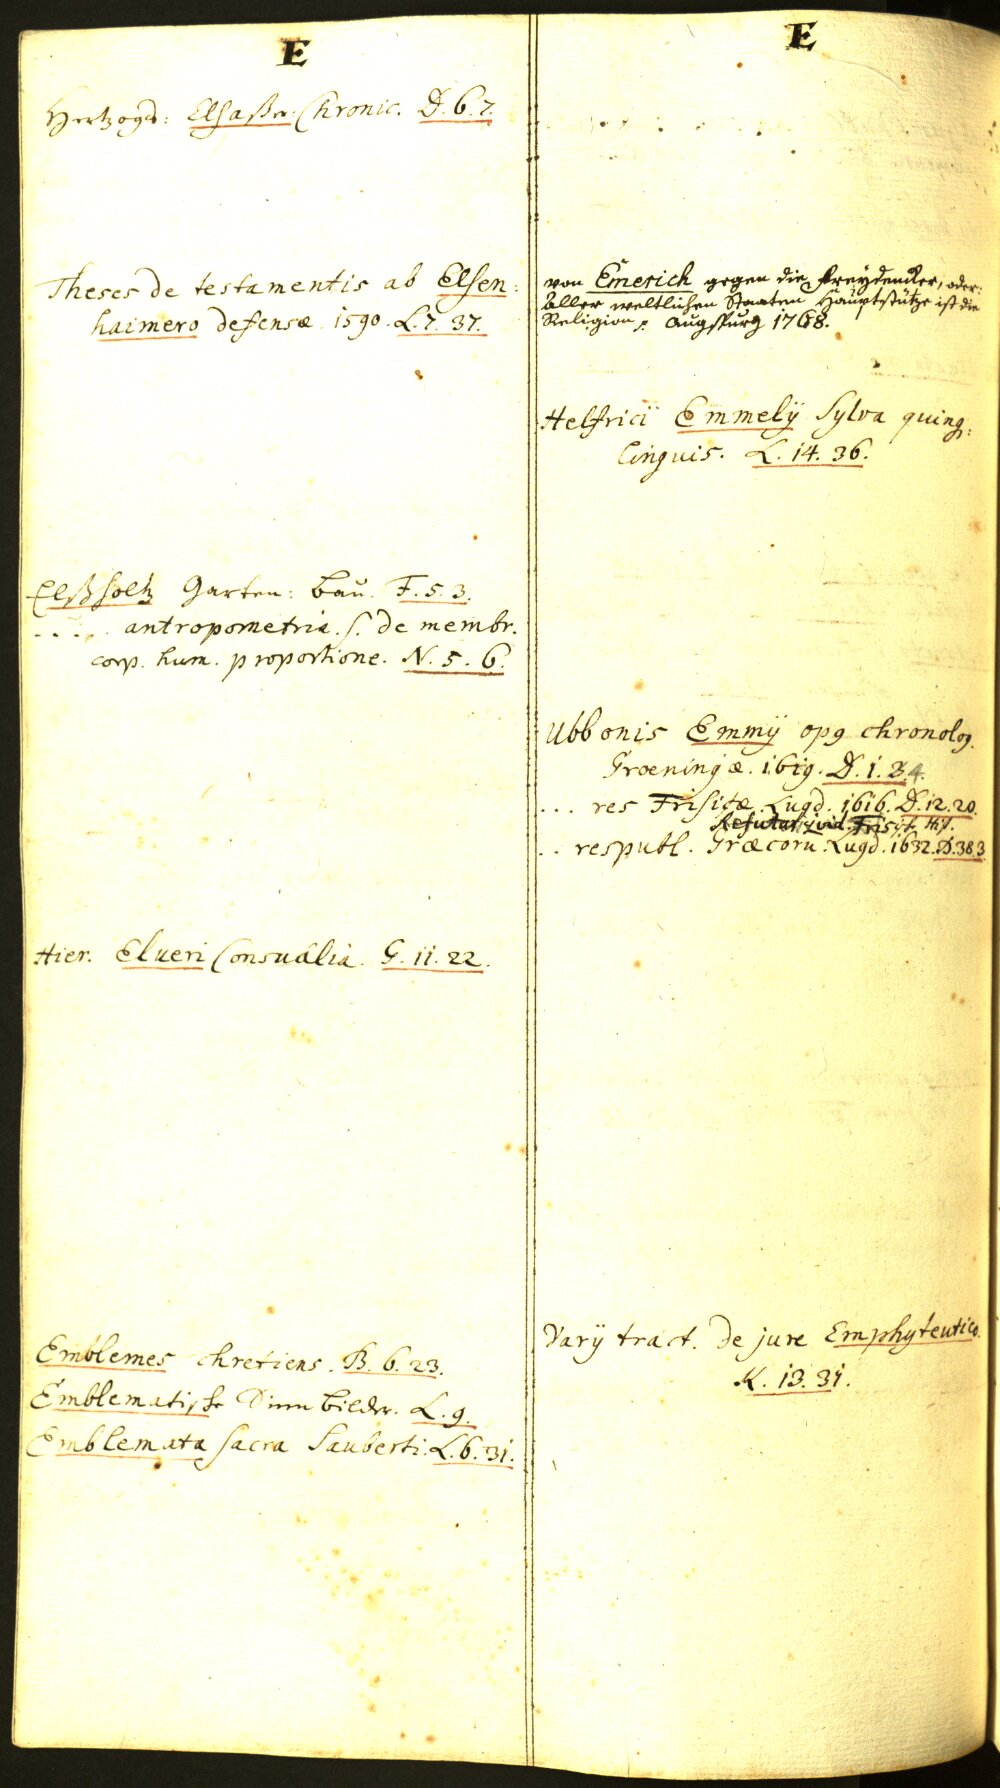 E
Hertzogs: Elsaßer: Chronic. D. 6. 7.
Theses de testamentis ab Elsen:
haimero defensæ 1590. L. 7. 37.
Elßholtz Garten: bau. F. 5. 3.
. . . . antropometria. s. de membr.
corp. hum. proportione. N. 5. 6.
Hier. Elueri Consualia. G. 11. 22.
Emblemes chretiens. B. 6. 23.
Emblematische Sinnbilder. L. 9.
Emblemata sacra Sauberti. L. 6. 31.
E
von Emerich gegen die Freydenker, oder:
Aller weltlichen Staaten Hauptstütze ist die
Religion, Augspurg 1768.
Helfricii Emmelÿ Sylva quinq:
linguis. L. 14. 36.
Ubbonis Emmÿ opq chronolog.
Groeningæ. 1619. D. 1. 4.
. . . res Frisicæ. Lugd. 1616. D. 12. 20.
Refutat. vid. Frisic. Hist.
. . respubl. Græcoru. Lugd. 1632. D. 38 3
Varÿ tract. de jure Emphyteutico.
K. 13. 31.